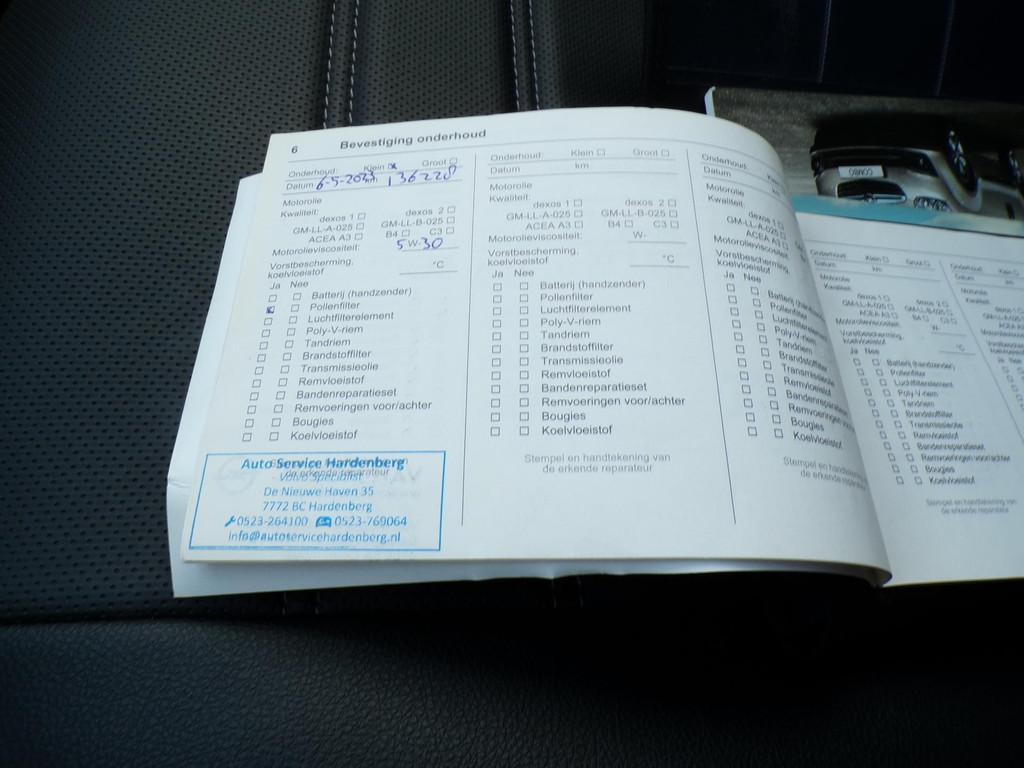 6 Bevestiging onderhoud
Onderhoud: Klein ☒ Groot ☐
Datum 6-5-2023 km 136228
Motorolie
Kwaliteit:
dexos 1 ☐ dexos 2 ☐
GM-LL-A-025 ☐ GM-LL-B-025 ☐
ACEA A3 ☐ B4 ☐ C3 ☐
Motorolieviscositeit: 5 W-30
Vorstbescherming,
koelvloeistof °C
Ja Nee
☐ ☐ Batterij (handzender)
☒ ☐ Pollenfilter
☐ ☐ Luchtfilterelement
☐ ☐ Poly-V-riem
☐ ☐ Tandriem
☐ ☐ Brandstoffilter
☐ ☐ Transmissieolie
☐ ☐ Remvloeistof
☐ ☐ Bandenreparatieset
☐ ☐ Remvoeringen voor/achter
☐ ☐ Bougies
☐ ☐ Koelvloeistof
de erkende reparateur
Auto Service Hardenberg
- Volvo Specialist -
De Nieuwe Haven 35
7772 BC Hardenberg
0523-264100 0523-769064
info@autoservicehardenberg.nl
Onderhoud: Klein ☐ Groot ☐
Datum km
Motorolie
Kwaliteit:
dexos 1 ☐ dexos 2 ☐
GM-LL-A-025 ☐ GM-LL-B-025 ☐
ACEA A3 ☐ B4 ☐ C3 ☐
Motorolieviscositeit: W-
Vorstbescherming,
koelvloeistof °C
Ja Nee
☐ ☐ Batterij (handzender)
☐ ☐ Pollenfilter
☐ ☐ Luchtfilterelement
☐ ☐ Poly-V-riem
☐ ☐ Tandriem
☐ ☐ Brandstoffilter
☐ ☐ Transmissieolie
☐ ☐ Remvloeistof
☐ ☐ Bandenreparatieset
☐ ☐ Remvoeringen voor/achter
☐ ☐ Bougies
☐ ☐ Koelvloeistof
Stempel en handtekening van
de erkende reparateur
Onderhoud:
Datum
Motorolie
Kwaliteit:
dexos 1 ☐
GM-LL-A-025 ☐
ACEA A3 ☐
Motorolieviscositeit:
Vorstbescherming,
koelvloeistof
Ja Nee
☐ ☐ Batterij
☐ ☐ Pollenfilter
☐ ☐ Luchtfilterelement
☐ ☐ Poly-V-riem
☐ ☐ Tandriem
☐ ☐ Brandstoffilter
☐ ☐ Transmissieolie
☐ ☐ Remvloeistof
☐ ☐ Bandenreparatieset
☐ ☐ Remvoeringen
☐ ☐ Bougies
☐ ☐ Koelvloeistof
Stempel en handtekening
de erkende
COMBO
Onderhoud: Klein ☐ Groot ☐
Datum km
Motorolie
Kwaliteit:
dexos 1 ☐ dexos 2 ☐
GM-LL-A-025 ☐ GM-LL-B-025 ☐
ACEA A3 ☐ B4 ☐ C3 ☐
Motorolieviscositeit: W-
Vorstbescherming,
koelvloeistof °C
Ja Nee
☐ ☐ Batterij (handzender)
☐ ☐ Pollenfilter
☐ ☐ Luchtfilterelement
☐ ☐ Poly-V-riem
☐ ☐ Tandriem
☐ ☐ Brandstoffilter
☐ ☐ Transmissieolie
☐ ☐ Remvloeistof
☐ ☐ Bandenreparatieset
☐ ☐ Remvoeringen voor/achter
☐ ☐ Bougies
☐ ☐ Koelvloeistof
Stempel en handtekening van
de erkende reparateur
Onderhoud:
Datum
Motorolie
Kwaliteit: